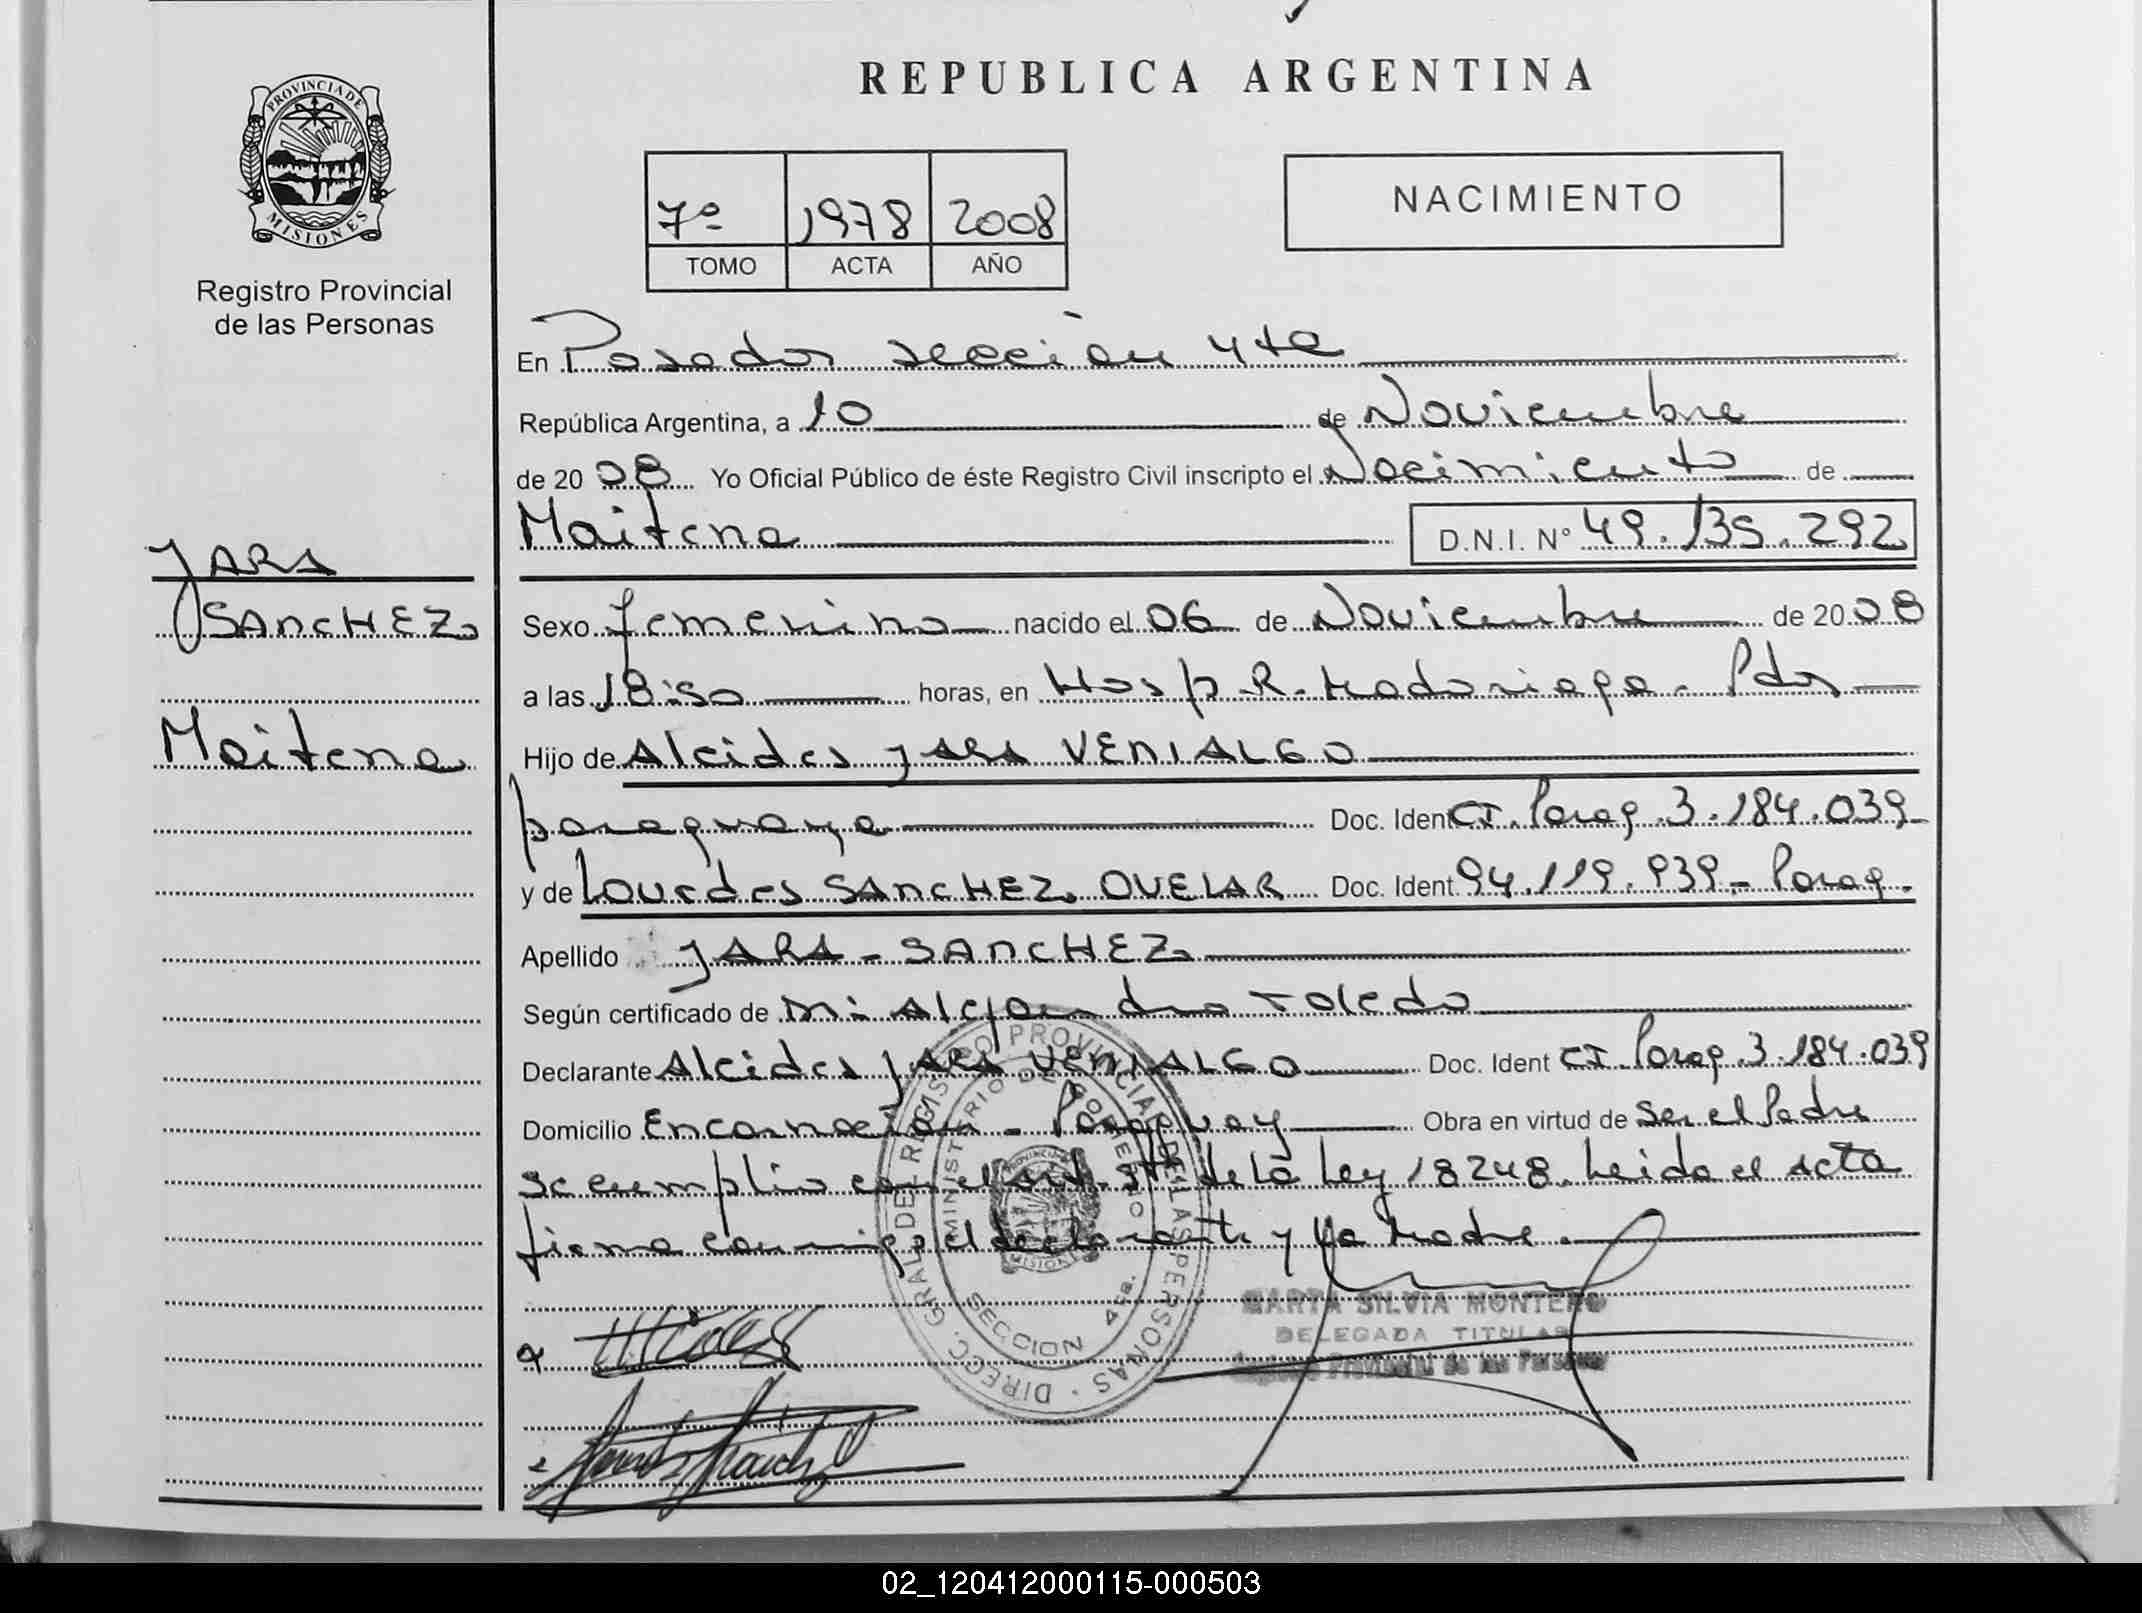 REPUBLICA ARGENTINA
PROVINCIA DE
MISIONES
Registro Provincial
de las Personas
7º 1978 2008
TOMO ACTA AÑO
NACIMIENTO
En Posadas sección 4ta
República Argentina, a 10 de Noviembre
de 2008 Yo Oficial Público de éste Registro Civil inscripto el Nacimiento de
Maitena D.N.I. Nº 49.135.292
JARA
SANCHEZ
Maitena
Sexo femenino nacido el 06 de Noviembre de 2008
a las 18:50 horas, en Hosp. R. Madariaga - Pdas
Hijo de Alcides JARA VENIALGO
paraguaya Doc. Ident CI. Parag. 3.184.039
y de Lourdes SANCHEZ OVELAR Doc. Ident. 94.119.939 - Parag.
Apellido JARA - SANCHEZ
Según certificado de Alejandro Toledo
Declarante Alcides JARA VENIALGO Doc. Ident CI. Parag. 3.184.039
Domicilio Encarnación - Paraguay Obra en virtud de Ser el Padre
Se cumplio con el art. de la Ley 18248. Leida el acta
firma conmigo el declarante y la Madre.
DIRECC. GRAL. DEL REGISTRO PROVINCIAL DE LAS PERSONAS
MINISTERIO DE GOBIERNO
PROVINCIA
MISIONES
SECCION 4ta.
MARTA SILVIA MONTERO
DELEGADA TITULAR
Registro Provincial de las Personas
02_120412000115-000503